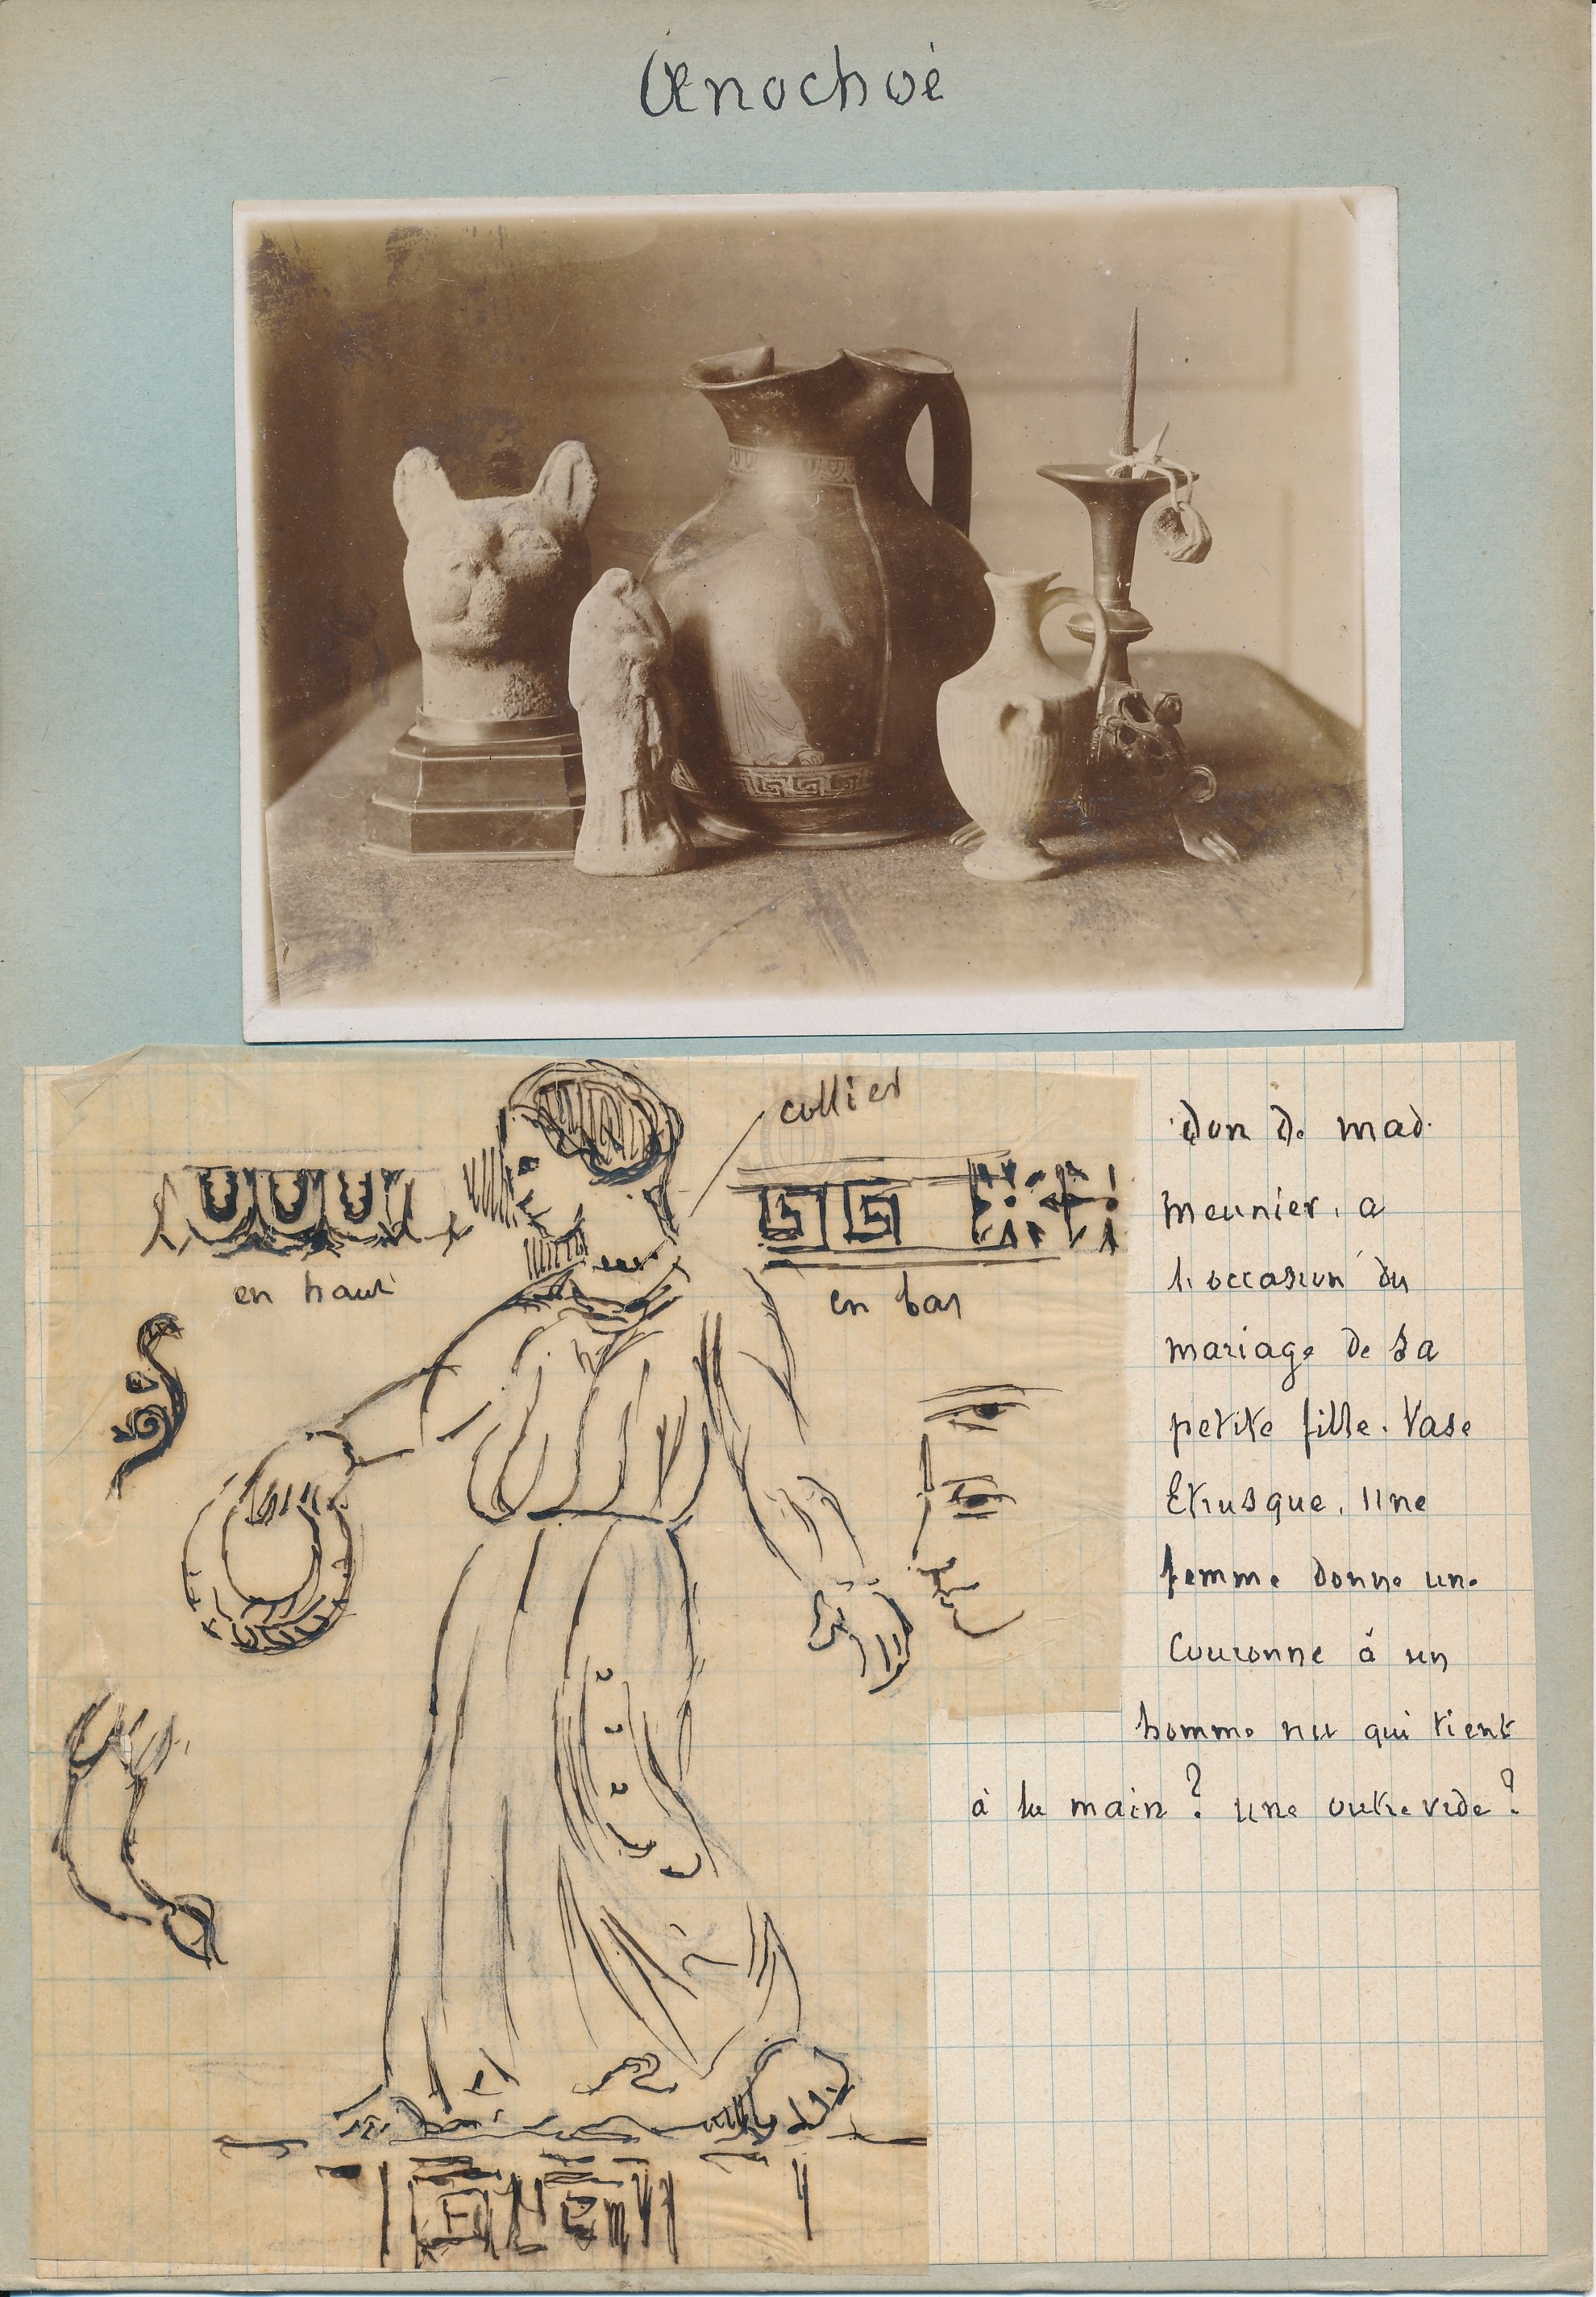 Œnochoé
collier
en haut
en bas
Don De mad.
meunier, a
l'occasion du
mariage de sa
petite fille. Vase
Etrusque. Une
femme donne une
Couronne à un
homme nu qui tient
à la main? une outre vide?